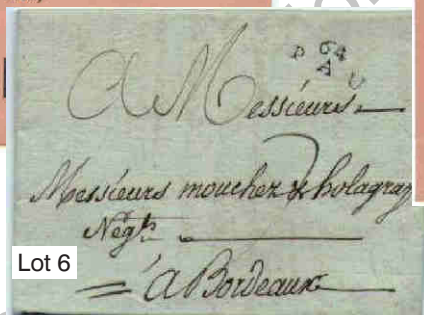 P 64 P
A U
A Messieurs
Messieurs mouchez & holagray
Négts
Lot 6
à Bordeaux